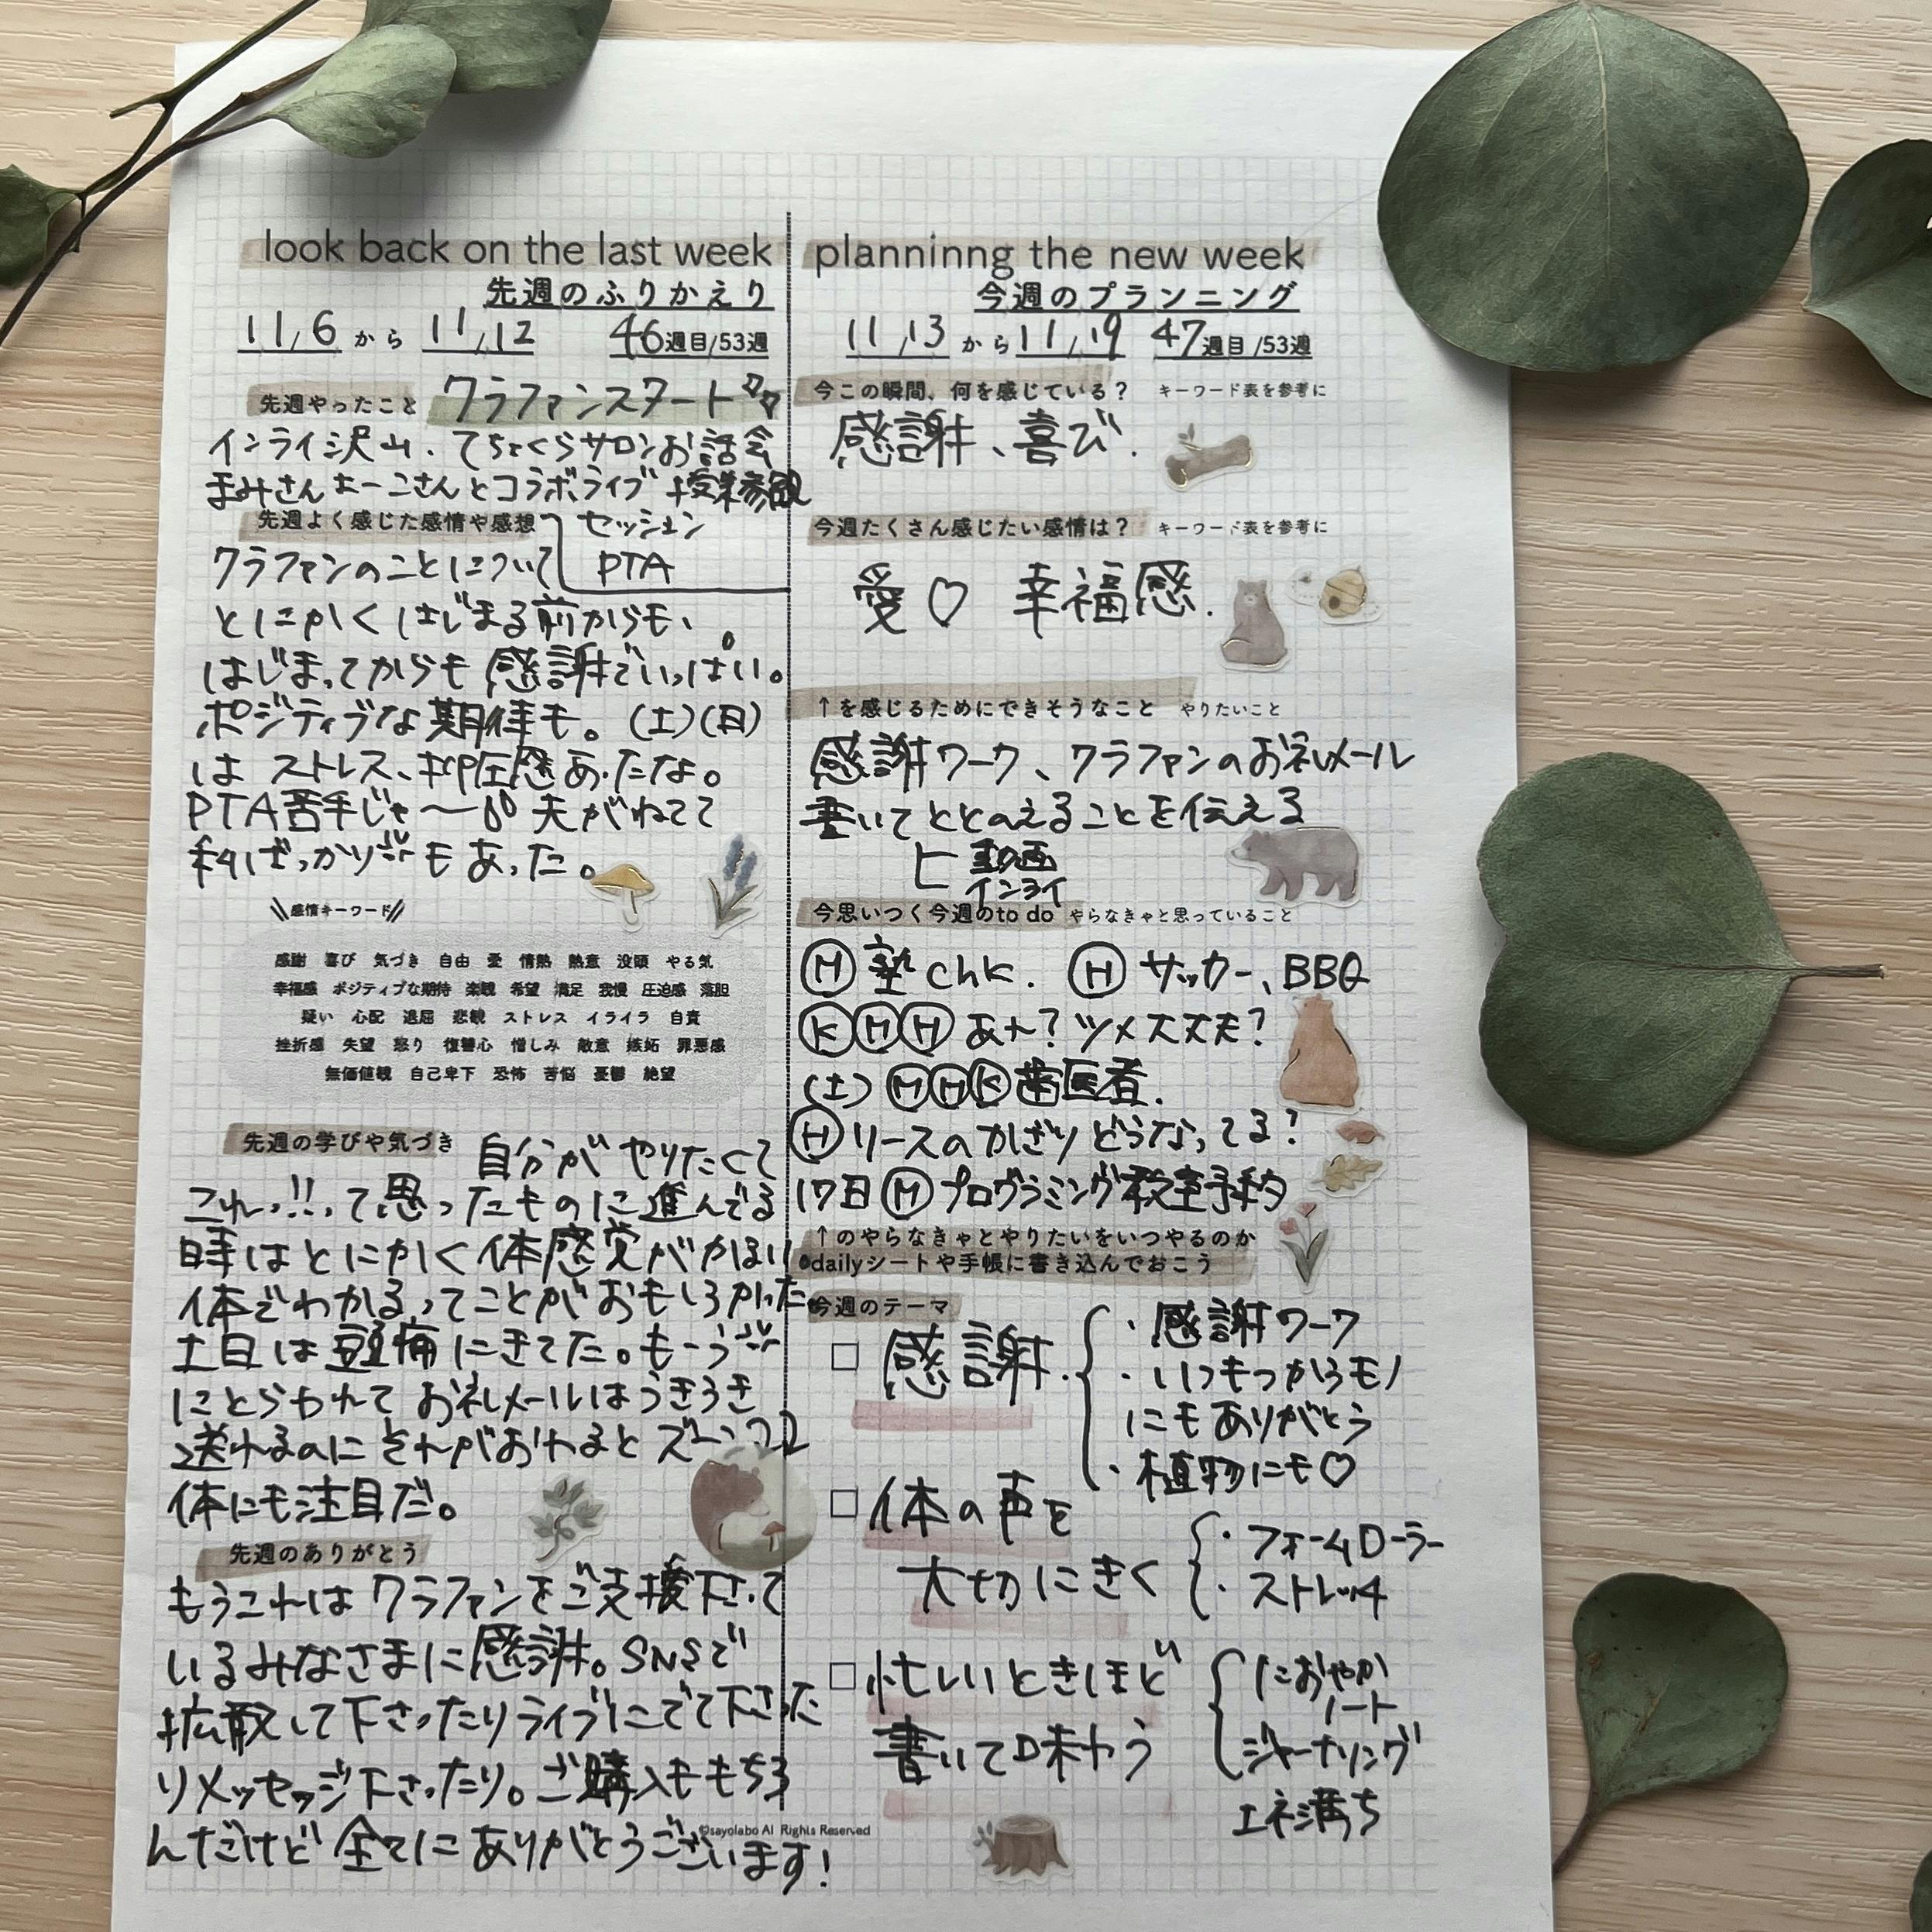 look back on the last week
先週のふりかえり
11/6 から 11/12 46週目/53週
先週やったこと クラファンスタート
インライ沢山、てちょくらサロンお話会
まみさんまーこさんとコラボライブ 授業参観
セッション
PTA
先週よく感じた感情や感想
クラファンのことについて
とにかくはじまる前からも、
はじまってからも感謝でいっぱい。
ポジティブな期待も。(土)(日)
は ストレス、抑圧感あったな。
PTA苦手じゃ〜 夫がねてて
私ばっかり もあった。
\\感情キーワード//
感謝 喜び 気づき 自由 愛 情熱 熱意 没頭 やる気
幸福感 ポジティブな期待 楽観 希望 満足 我慢 圧迫感 落胆
疑い 心配 退屈 悲観 ストレス イライラ 自責
挫折感 失望 怒り 復讐心 憎しみ 敵意 嫉妬 罪悪感
無価値観 自己卑下 恐怖 苦悩 憂鬱 絶望
先週の学びや気づき 自分がやりたくて
これっ!!って思ったものに進んでる
時はとにかく体感覚がかるい。
体でわかるってことがおもしろかった。
土日は頭痛にきてた。もーう
にとらわれて お礼メールはうきうき
送れるのに それがおわるとズーン
体にも注目だ。
先週のありがとう
もうこれは クラファンをご支援下さって
いるみなさまに感謝。SNSで
拡散して下さったりライブにでて下さった
りメッセージ下さったり。ご購入ももちろ
んだけど 全てに ありがとうございます!
planninng the new week
今週のプランニング
11/13 から 11/19 47週目/53週
今この瞬間、何を感じている? キーワード表を参考に
感謝、喜び.
今週たくさん感じたい感情は? キーワード表を参考に
愛♡ 幸福感.
↑を感じるためにできそうなこと やりたいこと
感謝ワーク、クラファンのお礼メール
書いてととのえることを伝える
動画
インライ
今思いつく今週のto do やらなきゃと思っていること
Ⓜ 塾chk. Ⓗ サッカー、BBQ
ⓀⒽⒽ ツメ大丈夫?
(土) ⓂⒽⓀ歯医者.
Ⓗリースのかざりどうなってる?
17日Ⓜプログラミング教室予約
↑のやらなきゃとやりたいをいつやるのか
dailyシートや手帳に書き込んでおこう
今週のテーマ
□ 感謝.
・感謝ワーク
・いつもつかうモノ
にもありがとう
・植物にも♡
□ 体の声を
大切にきく
・フォームローラー
・ストレッチ
□ 忙しいときほど
書いて味わう
におやか
ノート
ジャーナリング
エネ満ち
©sayolabo All Rights Reserved